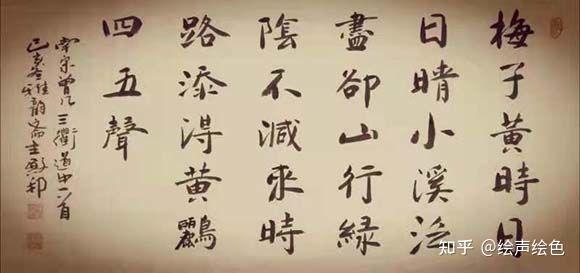 梅子黃時日
日晴小溪泛
盡卻山行綠
陰不減來時
路添得黃鸝
四五聲
南宋曾几三衢道中一首
己亥冬雅韻斋主
知乎 @绘声绘色